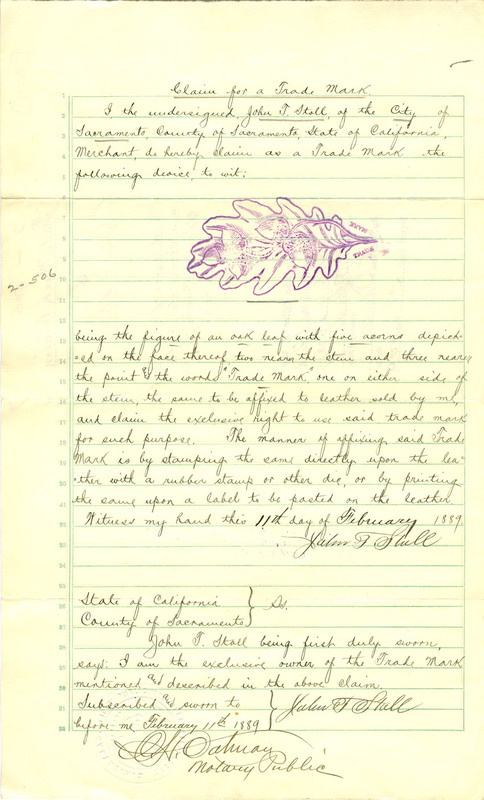 Claim for a Trade Mark.
I the undersigned, John T. Stoll, of the City of
Sacramento, County of Sacramento, State of California,
Merchant, do hereby claim as a Trade Mark the
following device, to wit:
TRADE
MARK
2-506
being the figure of an oak leaf with five acorns depict-
-ed on the face thereof two near the stem and three near
the point & the words "Trade Mark" one on either side of
the stem, the same to be affixed to leather sold by me,
and claim the exclusive right to use said trade mark
for such purpose. The manner of affixing said Trade
Mark is by stamping the same directly upon the lea-
-ther with a rubber stamp or other die, or by printing
the same upon a label to be pasted on the leather
Witness my hand this 11th day of February 1889.
John T Stoll
State of California } ss.
County of Sacramento
John T. Stoll being first duly sworn,
says: I am the exclusive owner of the Trade Mark
mentioned and described in the above claim.
Subscribed and sworn to
before me February 11th 1889
John T Stoll
Notary Public